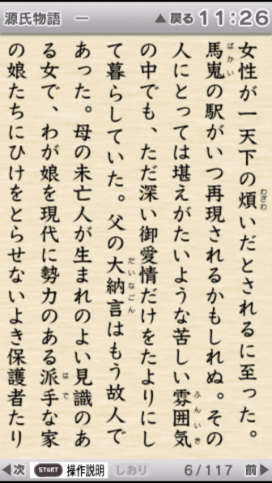 源氏物語 一
▲戻る 11:26
女性が一天下の煩いだとされるに至った。
わざわ
馬嵬の駅がいつ再現されるかもしれぬ。その
ばかい
人にとっては堪えがたいような苦しい雰囲気
ふんいき
の中でも、ただ深い御愛情だけをたよりにし
て暮らしていた。父の大納言はもう故人で
だいなごん
あった。母の未亡人が生まれのよい見識のあ
る女で、わが娘を現代に勢力のある派手な家
はで
の娘たちにひけをとらせないよき保護者たり
◀次 START 操作説明 しおり 6/117 前▶